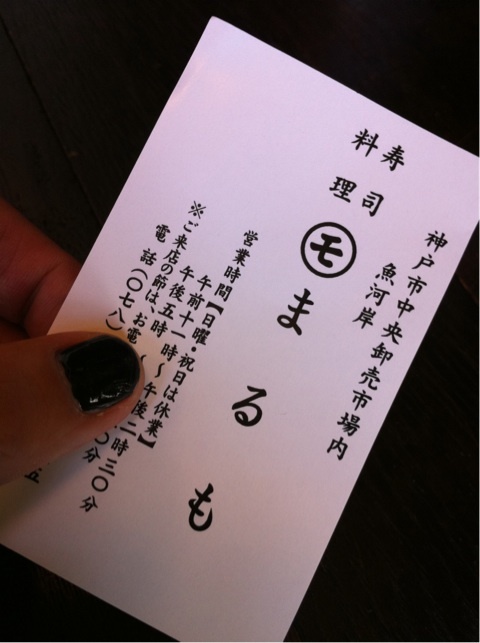 神戸市中央卸売市場内
魚河岸
寿司
料理
モ
まるも
営業時間【日曜・祝日は休業】
午前十一時〜午後二時三〇分
午後五時〜
〇分
※ご来店の節は、お電
電話(〇七八)
五